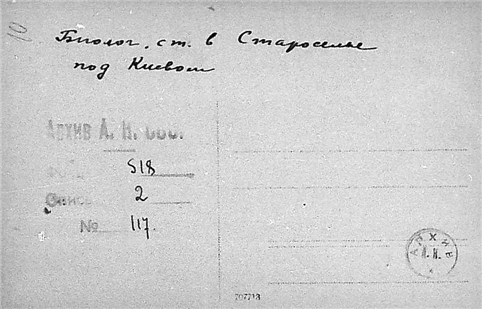 10
Биолог. ст. в Староселье
под Киевом
Архив А. Н. СССР.
518
Опись 2
№ 117.
АРХИВ
А.Н.
707713